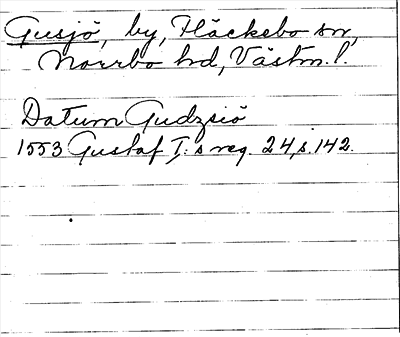 Gusjö, by, Fläckebo sn,
Norrbo hd, Västm. l.
Datum Gudzsiö
1553 Gustaf I:s reg. 24, s. 142.